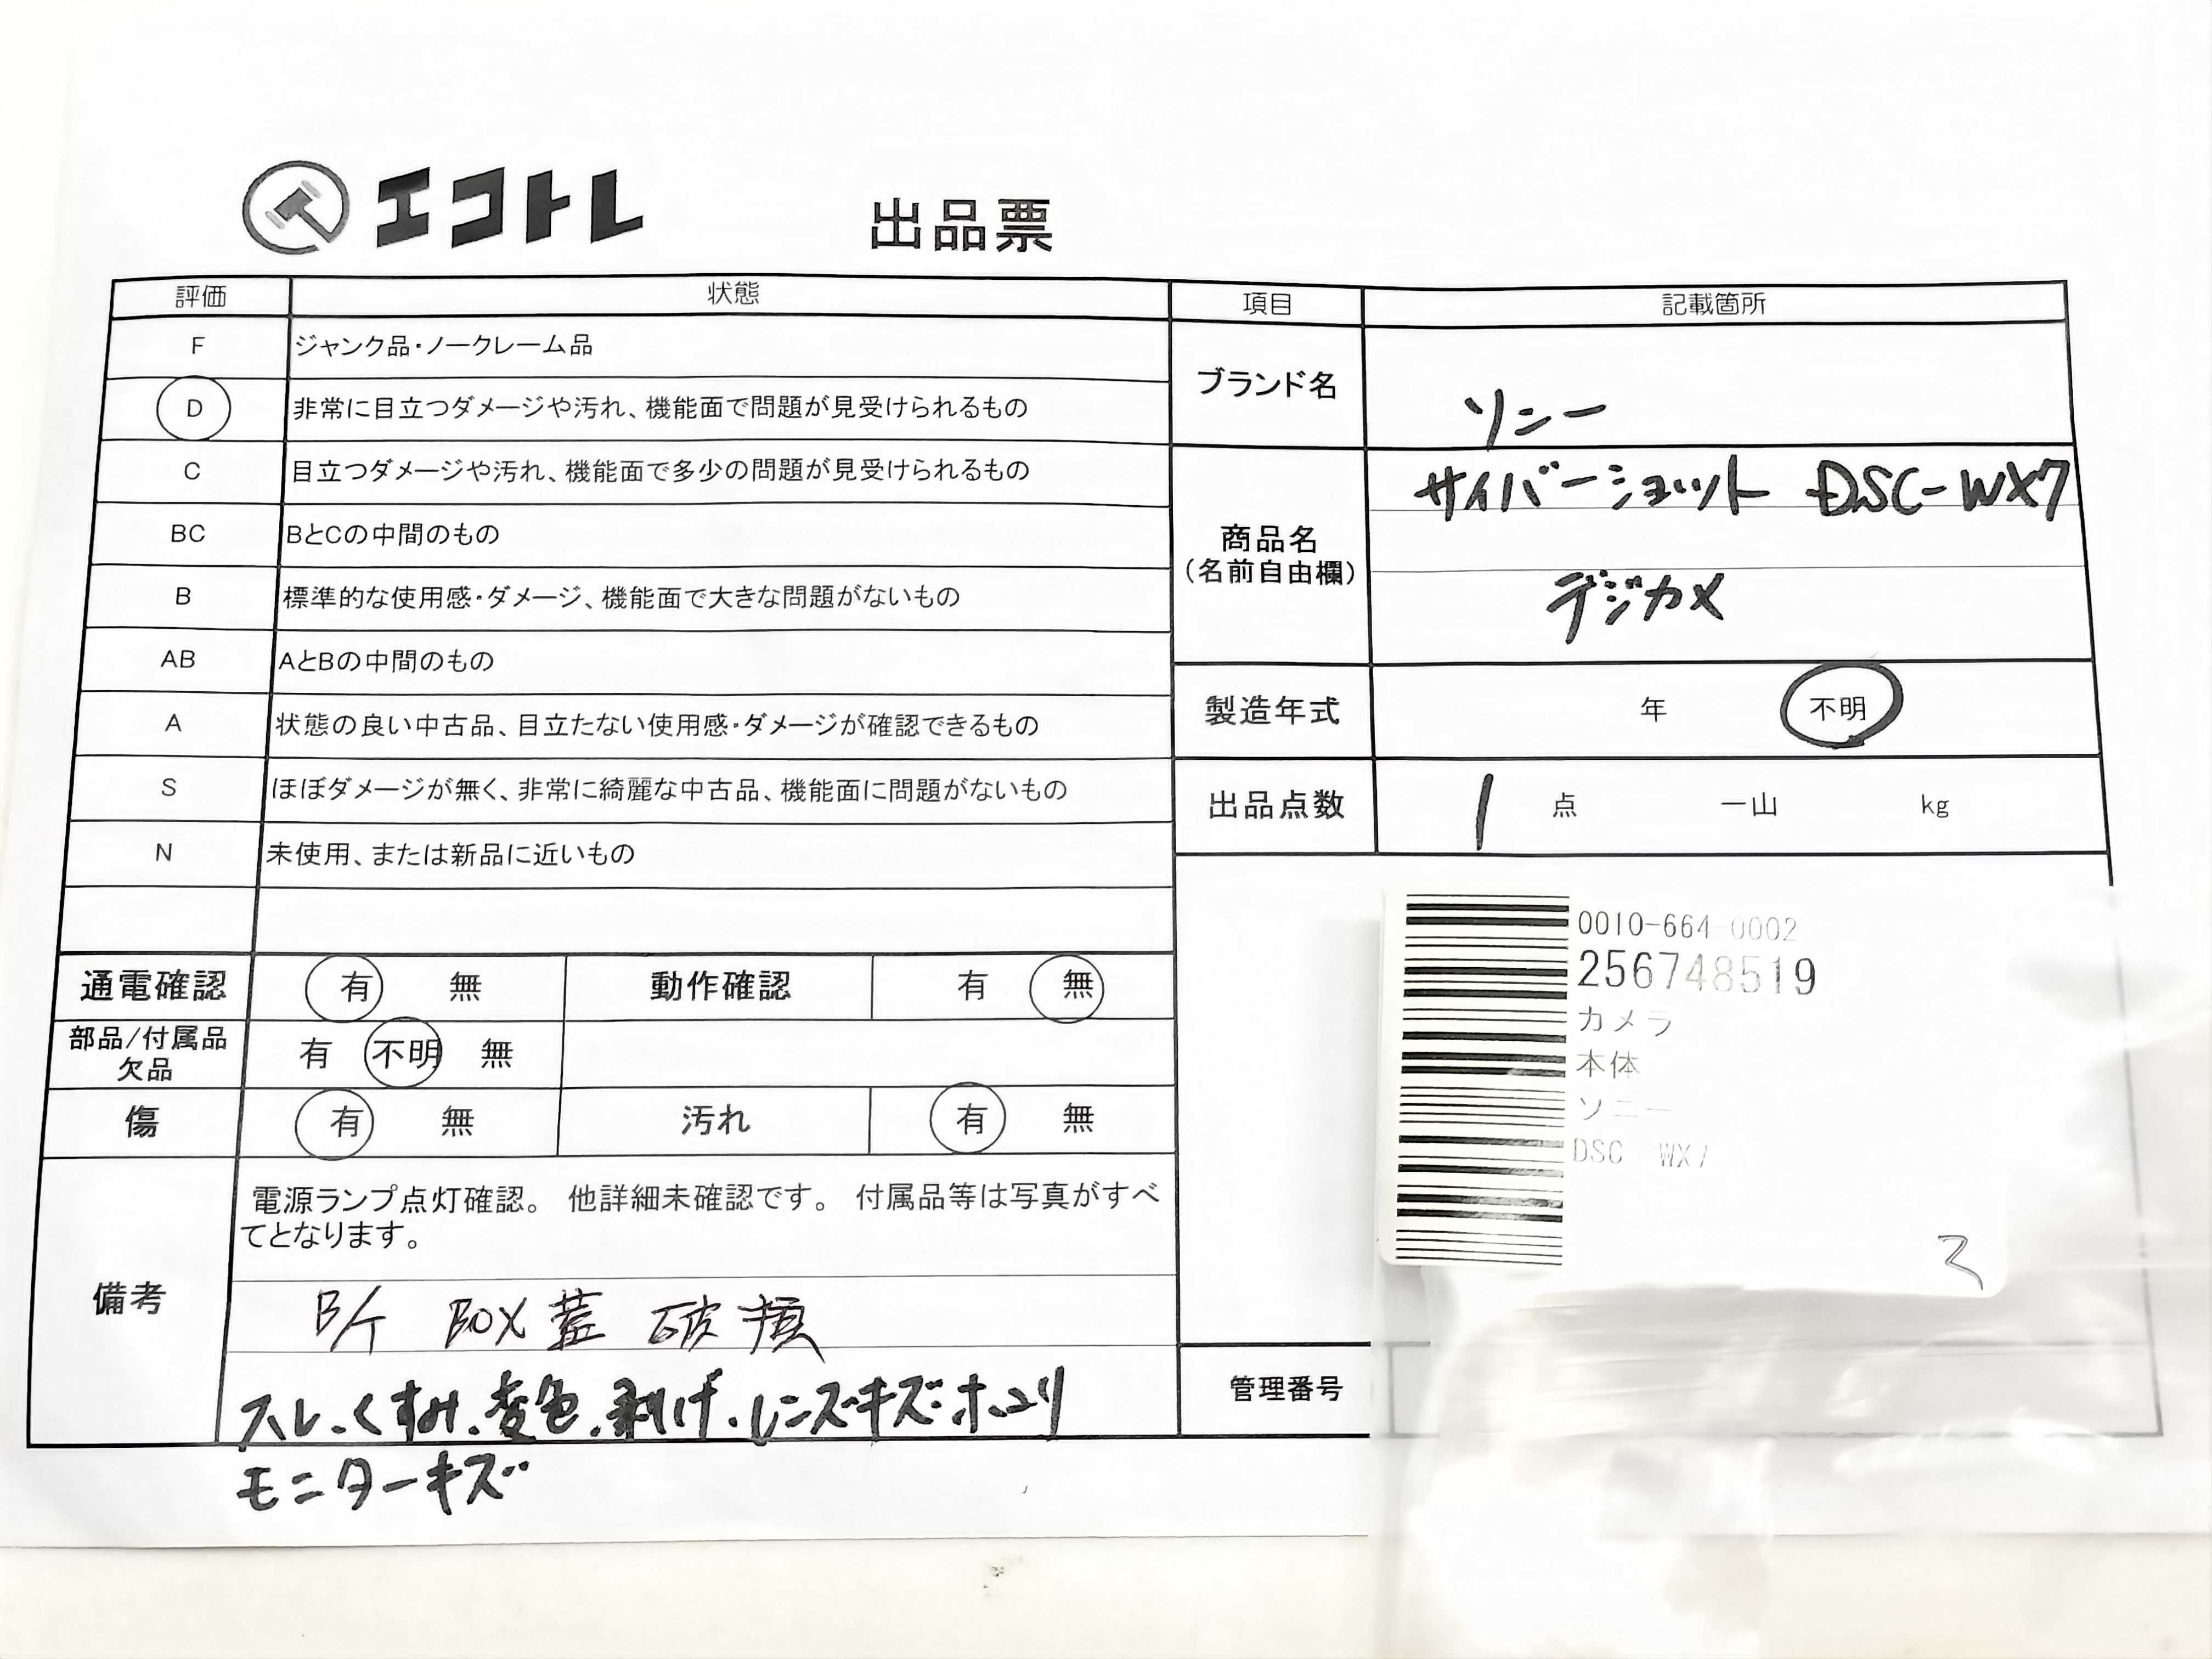 エコトレ 出品票
評価 状態
F ジャンク品・ノークレーム品
D 非常に目立つダメージや汚れ、機能面で問題が見受けられるもの
C 目立つダメージや汚れ、機能面で多少の問題が見受けられるもの
BC BとCの中間のもの
B 標準的な使用感・ダメージ、機能面で大きな問題がないもの
AB AとBの中間のもの
A 状態の良い中古品、目立たない使用感・ダメージが確認できるもの
S ほぼダメージが無く、非常に綺麗な中古品、機能面に問題がないもの
N 未使用、または新品に近いもの
通電確認 有 無 動作確認 有 無
部品/付属品
欠品 有 不明 無
傷 有 無 汚れ 有 無
備考
電源ランプ点灯確認。 他詳細未確認です。 付属品等は写真がすべ
てとなります。
B/T BOX蓋 破損
スレ.くすみ.変色.剥げ.レンズキズ・ホコリ
モニターキズ
項目 記載箇所
ブランド名 ソニー
商品名
(名前自由欄)
サイバーショット DSC-WX7
デジカメ
製造年式 年 不明
出品点数 1 点 一山 kg
0010-664-0002
256748519
カメラ
本体
ソニー
DSC WX7
管理番号